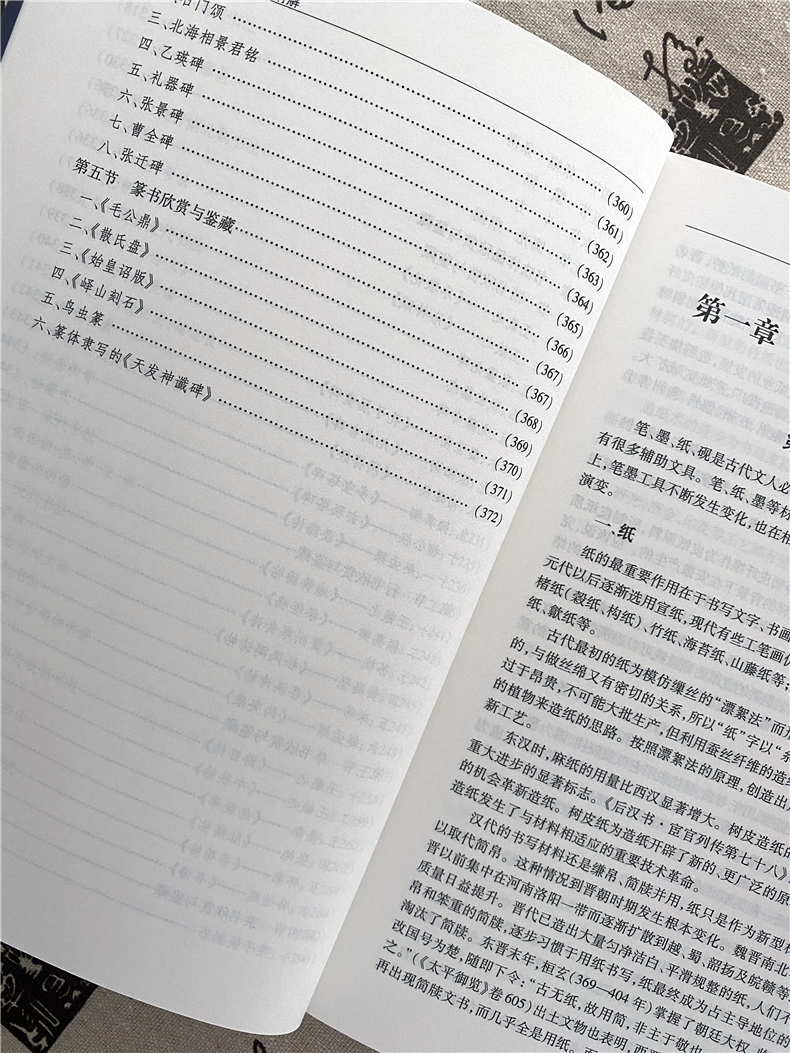 石门颂 (360)
三、北海相景君铭 (361)
四、乙瑛碑 (362)
五、礼器碑 (363)
六、张景碑 (364)
七、曹全碑 (365)
八、张迁碑 (366)
第五节 篆书欣赏与鉴藏 (367)
一、《毛公鼎》 (367)
二、《散氏盘》 (368)
三、《始皇诏版》 (369)
四、《峄山刻石》 (370)
五、鸟虫篆 (371)
六、篆体隶写的《天发神谶碑》 (372)
第一章
笔、墨、纸、砚是古代文人必
有很多辅助文具。笔、纸、墨等材
上,笔墨工具不断发生变化,也在相
演变。
一、纸
纸的最重要作用在于书写文字、书画
元代以后逐渐选用宣纸,现代有些工笔画仍
楮纸(榖纸、构纸)、竹纸、海苔纸、山藤纸等;
纸、歙纸等。
古代最初的纸为模仿缫丝的“漂絮法”而
的,与做丝绵又有密切的关系,所以“纸”字以“糸
过于昂贵,不可能大批生产,但利用蚕丝纤维的造纸
的植物来造纸的思路。按照漂絮法的原理,创造出
新工艺。
东汉时,麻纸的用量比西汉显著增大。树皮造纸的
重大进步的显著标志。《后汉书·宦官列传第七十八》
的机会革新造纸。树皮纸为造纸开辟了新的、更广泛的原
造纸发生了与材料相适应的重要技术革命。
汉代的书写材料还是缣帛、简牍并用,纸只是作为新型材
以取代简帛。这种情况到晋朝时期发生根本变化。魏晋南北
晋以前集中在河南洛阳一带而逐渐扩散到越、蜀、韶扬及皖赣等
质量日益提升。晋代已造出大量匀净洁白、平滑规整的纸,人们不
帛和笨重的简牍,逐步习惯于用纸书写,纸最终成为占主导地位的
淘汰了简牍。东晋末年,桓玄(369—404年)掌握了朝廷大权,
改国号为楚,随即下令:“古无纸,故用简,非主于敬也
之。”(《太平御览》卷605)出土文物也表明,西
再出现简牍文书,而几乎全是用纸。